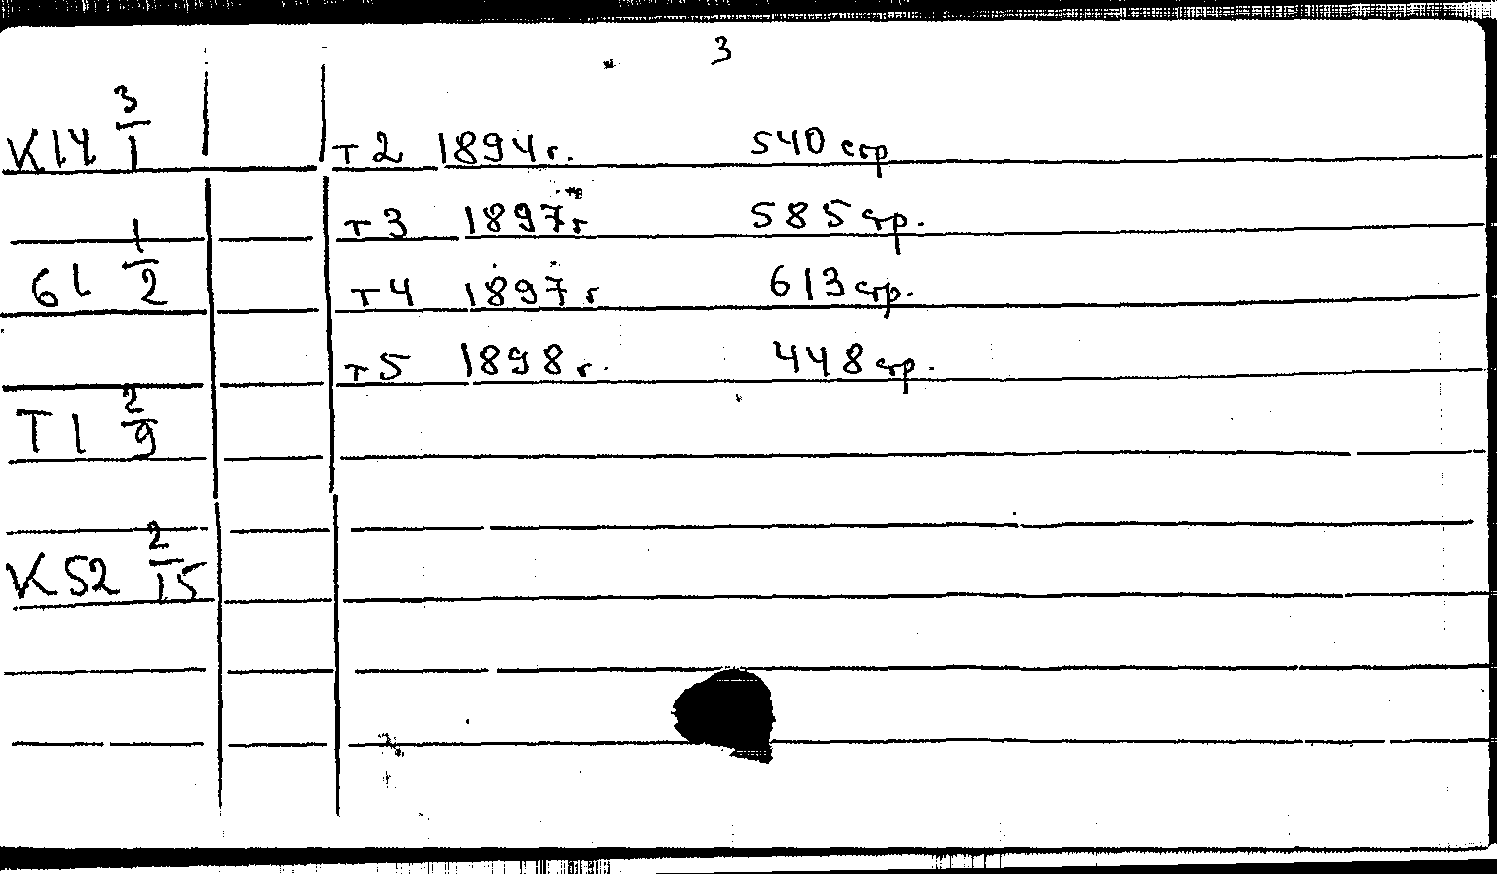 3
К14 3/1 т 2 1894 г. 540 стр
т 3 1897 г 585 стр.
61 1/2 т 4 1897 г 613 стр.
т 5 1898 г. 448 стр.
Т1 2/9
К52 2/15